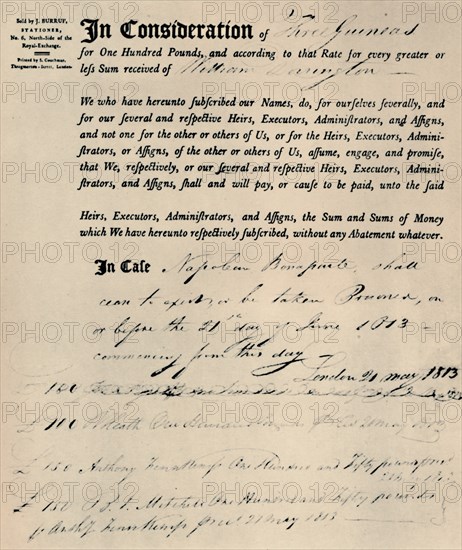 Sold by J. BURRUP,
STATIONER,
No. 6, North-Side of the
Royal-Exchange.
Printed by S. Couchman,
Throgmorton-Street, London.
In Consideration of Three Guineas
for One Hundred Pounds, and according to that Rate for every greater or
leſs Sum received of William
We who have hereunto ſubſcribed our Names, do, for ourſelves ſeverally, and
for our ſeveral and reſpective Heirs, Executors, Adminiſtrators, and Aſſigns,
and not one for the other or others of Us, or for the Heirs, Executors, Admini-
ſtrators, or Aſſigns, of the other or others of Us, aſſume, engage, and promiſe,
that We, reſpectively, or our ſeveral and reſpective Heirs, Executors, Admini-
ſtrators, and Aſſigns, ſhall and will pay, or cauſe to be paid, unto the ſaid
Heirs, Executors, Adminiſtrators, and Aſſigns, the Sum and Sums of Money
which We have hereunto reſpectively ſubſcribed, without any Abatement whatever.
In Case Napoleon Bonaparte shall
cease to exist, or be taken Prisoner, on
or before the 21st day of June 1813 -
commencing from this day -
London 21 may 1813
£ 100
£ 100 Heath One Hundred 21 May 1813
£ 150 Anthony One Hundred and Fifty pounds
£ 150 Mitchell One Hundred and Fifty pounds
21 May 1813